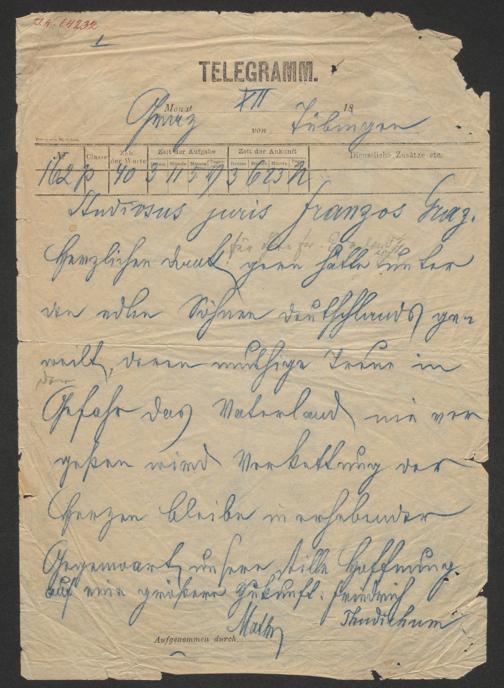 1
TELEGRAMM.
Monat XII 18
Graz von Tübingen
Nr Classe Zahl der Worte Zeit der Aufgabe Zeit der Ankunft Dienstliche Zusätze etc.
162 p 40 3 11 5 3 6 23
Studiosus juris Franzos Graz.
Herzlichen dank gern hätte unter
den edlen Söhnen deutschlands ge=
weilt, deren muthige Treue in
der
Gefahr das Vaterland nie ver
geßen wird Verkettung der
Herzen bleibe in erhebender
Gegenwart, unsere stille Hoffnung
auf eine größere Zukunft: Friedrich
Thudichum
Aufgenommen durch